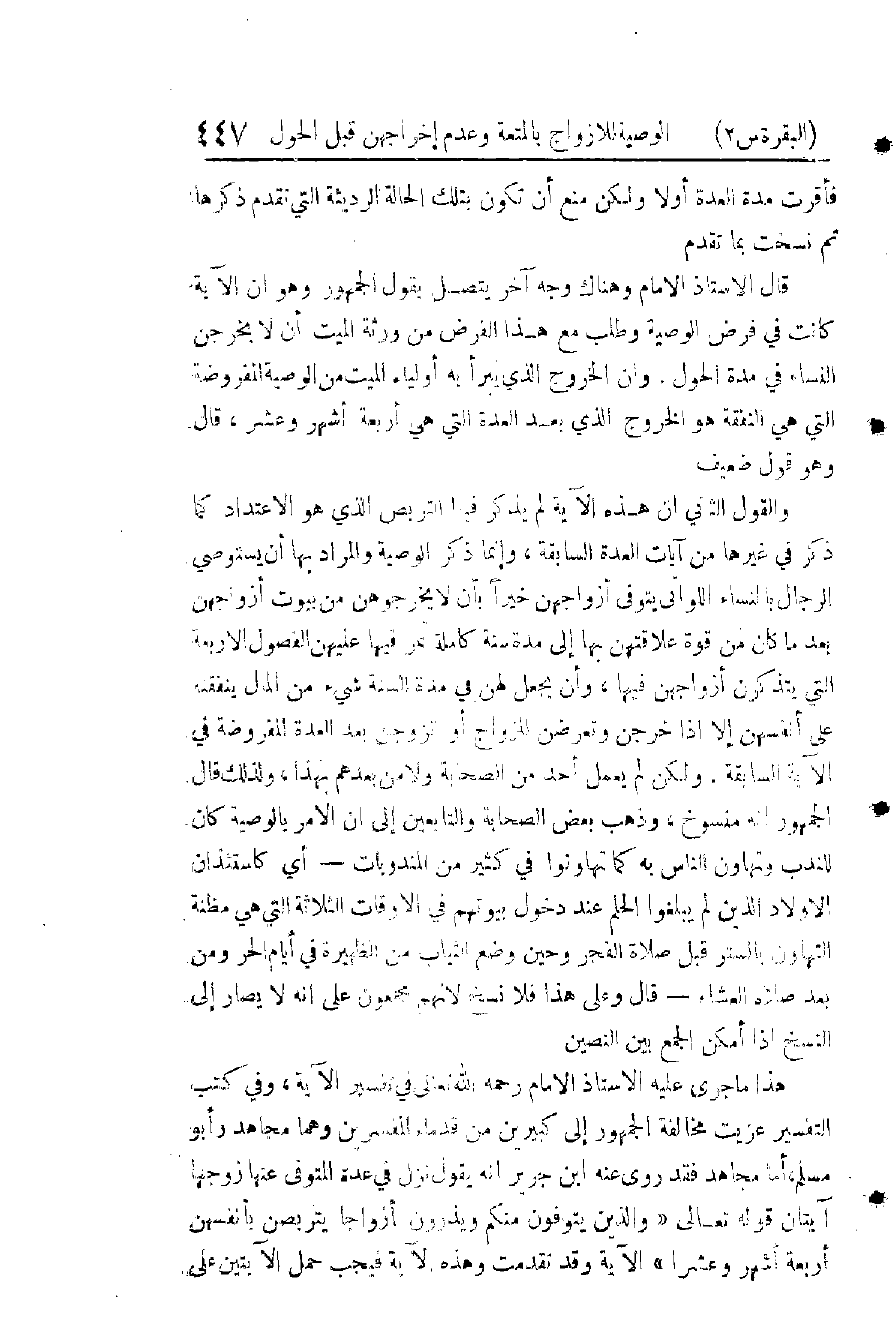 (البقرة س٢) الوصية للازواج بالمتعة وعدم إخراجهن قبل الحول ٤٤٧
فأقرت مدة العدة أولا ولكن منع أن تكون بتلك الحالة الرديئة التي تقدم ذكرها
ثم نسخت بما تقدم
قال الاستاذ الامام وهناك وجه آخر يتصل بقول الجمهور وهو ان الآية
كانت في فرض الوصية وطلب مع هذا الفرض من ورثة الميت أن لا يخرجن
النساء في مدة الحول . وان الخروج الذي يبرأ به أولياء الميت من الوصية المفروضة
التي هي النفقة هو الخروج الذي بعد العدة التي هي أربعة أشهر وعشر ، قال
وهو قول ضعيف
والقول الثاني ان هذه الآية لم يذكر فيها التربص الذي هو الاعتداد كما
ذكر في غيرها من آيات العدة السابقة ، وإنما ذكر الوصية والمراد بها أن يستوصي
الرجال بالنساء اللواتي يتوفى أزواجهن خيراً بأن لا يخرجوهن من بيوت أزواجهن
بعد ما كان من قوة علاقتهن بها إلى مدة سنة كاملة تمر فيها عليهن الفصول الاربعة
التي يتذكرن أزواجهن فيها ، وأن يجعل لهن في مدة السنة شيء من المال ينفقنه
على أنفسهن إلا اذا خرجن وتعرضن للزواج أو تزوجن بعد العدة المفروضة في
الآية السابقة . ولكن لم يعمل أحد من الصحابة ولا من بعدهم بهذا ، ولذلك قال
الجمهور انه منسوخ ، وذهب بعض الصحابة والتابعين إلى ان الامر بالوصية كان
للندب وتهاون الناس به كما تهاونوا في كثير من المندوبات — أي كاستئذان
الاولاد الذين لم يبلغوا الحلم عند دخول بيوتهم في الاوقات الثلاثة التي هي مظنة
التهاون بالستر قبل صلاة الفجر وحين وضع الثياب من الظهيرة في أيام الحر ومن
بعد صلاة العشاء — قال وعلى هذا فلا نسخ لانهم مجمعون على انه لا يصار إلى
النسخ اذا أمكن الجمع بين النصين
هذا ما جرى عليه الاستاذ الامام رحمه الله تعالى في تفسير الآية ، وفي كتب
التفسير عزيت مخالفة الجمهور إلى كبيرين من قدماء المفسرين وهما مجاهد وأبو
مسلم، أما مجاهد فقد روى عنه ابن جرير انه يقول نزل في عدة المتوفى عنها زوجها
آيتان قوله تعالى « والذين يتوفون منكم ويذرون أزواجا يتربصن بأنفسهن
أربعة أشهر وعشرا » الآية وقد تقدمت وهذه الآية فيجب حمل الآيتين على